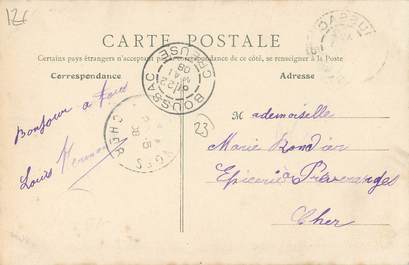 12f
CARTE POSTALE
Certains pays étrangers n'acceptant pas la correspondance de ce côté, se renseigner à la Poste
Correspondance
Adresse
BOUSSAC
CREUSE
08
CHER
15
08
23
Bonjour a tous
Louis
Mademoiselle
Marie
Epicerie à Préveranges
Cher